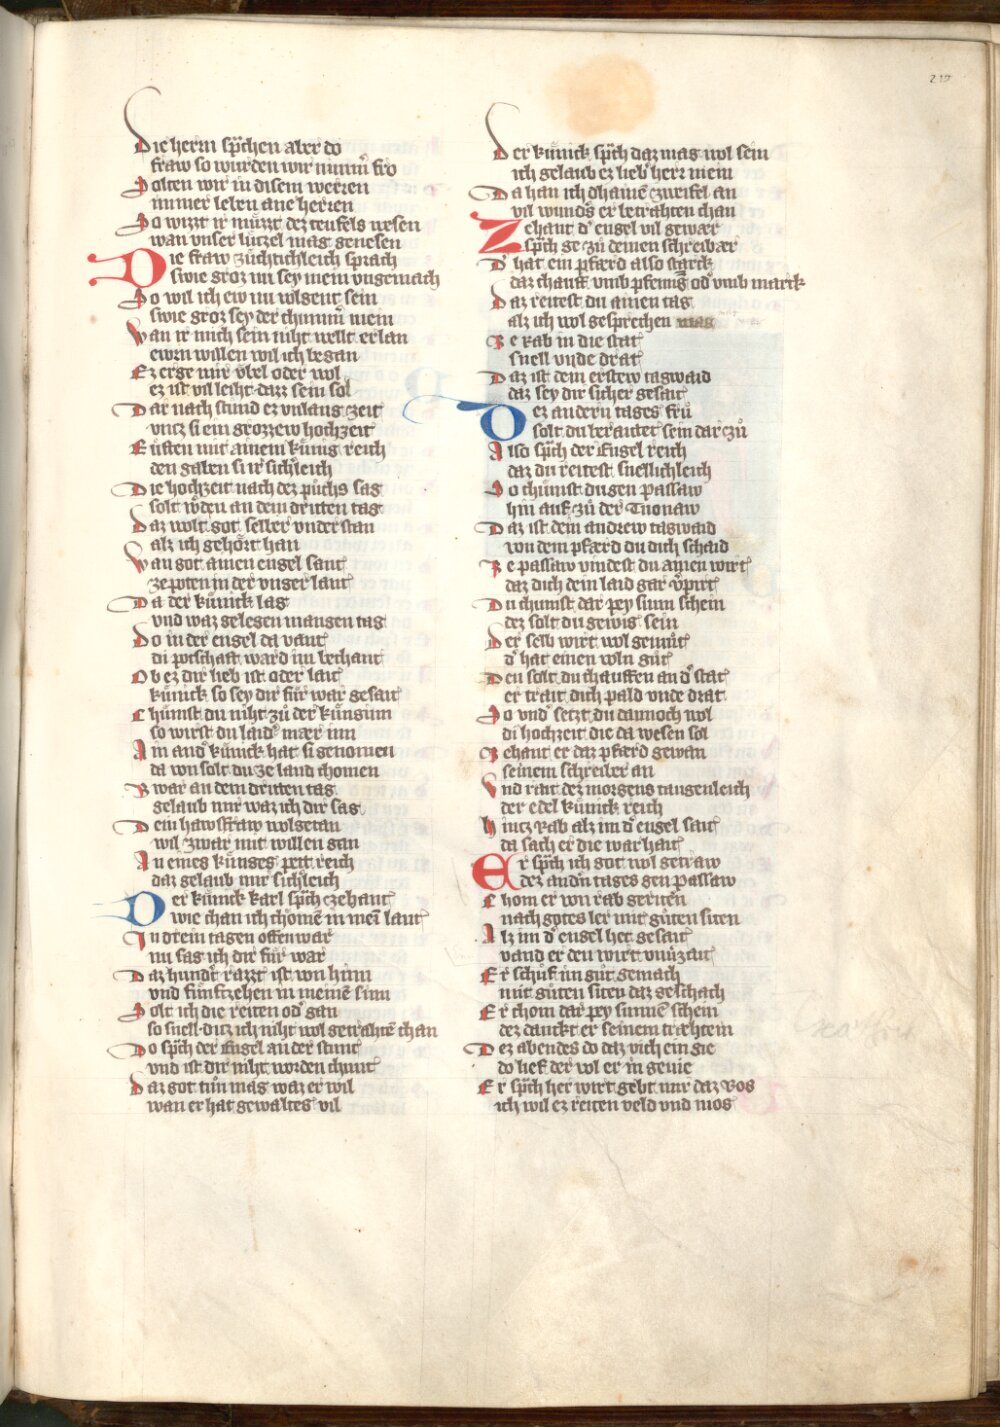 Die herrn sp̄chen aber do
fraw so wurden wir nimm̄ fro
Solten wir in disem werren
immer leben ane herren
So wizzt ir müzzt dez teufels wesen
wan vnser lützel mag genesen
Die fraw züchtichleich sprach
swie groz nu sey mein vngemach
So wil ich ew nu volgent sein
swie groz sey der chumm̄ mein
Wan ir mich sein niht wellt erlan
ewrn willen wil ich began
Ez erge mir vbel oder wol
ez ist vil leiht daz sein sol
Dar nach stund ez vnlang zeit
vncz si ein grozzew hochzeit
Eütten mit ainem künig reich
den gaben si ir sich̾leich
Die hochzeit nach dez půchs sag
solt w̾den an dem dritten tag
Daz wolt got selber vnderstan
alz ich gehört han
Wan got ainen engel sant
ze poten in der vnger lant
Da der künick lag
vnd waz gelegen mangen tag
Do in der engel da vant
di potschaft ward im bechant
Ob ez dir lieb ist oder lait
künick so sey dir für war gesait
Chümst du niht zü der künginn
so wirst du laid̾ mær inn
Ain and̾ künick hat si genomen
da von solt du ze land chomen
Zwar an dem dritten tag
gelaub mir waz ich dir sag
Dein hawsfraw wolgetan
wil zwar mit willen gan
An eines künges pett reich
daz gelaub mir sich̾leich
Der künick karl sp̄ch czehant
wie chan ich chömē in mein̄ lant
In drein tagen offenwar
nu sag ich dir für war
Daz hund̾t razzt ist von hinn
vnd fünftzehen in meinē sinn
Solt ich die reiten od̾ gan
so snell ducz ich niht wol getrahtē chan
Do sp̄ch der Engel an der stunt
vnd ist dir niht worden chunt
Daz got tün mag waz er wil
wan er hat gewaltes vil
Der künick sp̄ch daz mag wol sein
ich gelaub ez lieb herr mein
Da han ich dhainē zweifel an
vil wund̾s er betrahten chan
Zehant d̾ engel vil gewær
sp̄ch ge zü deinen schreibær
D̾ hat ein pfærd also starck
daz chauff vmb pfening od̾ vmb marck
Daz reitest du ainen tag
alz ich wol gesprechen mag
Ze Rab in die stat
snell vnde drat
Daz ist dein erstew tagwaid
daz sey dir sicher gesait
Dez andern tages frü
solt du beraitet sein dar zü
Also sp̄ch der Engel reich
daz du reitest snellichleich
So chümst du gen Passaw
hin auf zü der Tuonaw
Daz ist dein andrew tagwaid
von dem pfærd du dich schaid
Ze passaw vindest du ainen wirt
daz dich dein laid gar v̾pirt
Du chumst dar pey sunn schein
dez solt du gewis sein
Der selb wirt wol gemüt
d̾ hat einen voln güt
Den solt du chauffen an d̾ stat
er trait dich pald vnde drat
So vnd̾ setzt du dannoch wol
di hochzeit die da wesen sol
Zehant er daz pfærd gewan
seinem schreiber an
Vnd rait dez morgens taugenleich
der edel künick reich
Hincz Rab alz im d̾ engel sait
da sach er die warhait
Er sp̄ch ich got wol getraw
dez and̾n tages gen Passaw
Chom er von rab geriten
nach gotes ler mit güten siten
Alz im d̾ engel het gesait
vand er den wirt vnu̾zait
Er schüf im güt gemach
mit güten siten daz geschach
Er chom dar pey sunnē schein
dez danckt er seinem træhtein
Dez abendes do daz vich ein gie
do lief der vol er in gevie
Er sp̄ch her wirt gebt mir daz Ros
ich wil ez reiten veld vnd mos